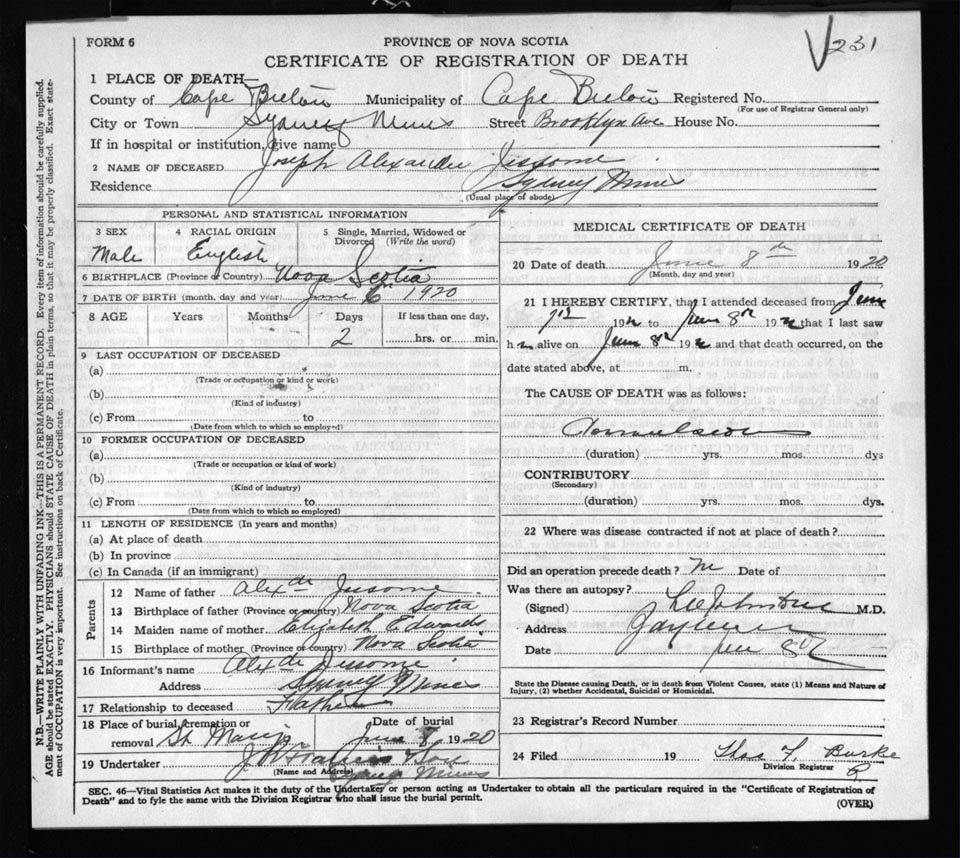 FORM 6
PROVINCE OF NOVA SCOTIA
231
CERTIFICATE OF REGISTRATION OF DEATH
1 PLACE OF DEATH—
County of Cape Breton Municipality of Cape Breton Registered No.
(For use of Registrar General only)
City or Town Sydney Mines Street Brooklyn Ave House No.
If in hospital or institution, give name
2 NAME OF DECEASED Joseph Alexander Jessome
Residence Sydney Mines
(Usual place of abode)
PERSONAL AND STATISTICAL INFORMATION
3 SEX 4 RACIAL ORIGIN 5 Single, Married, Widowed or
Divorced (Write the word)
Male English S
6 BIRTHPLACE (Province or Country) Nova Scotia
7 DATE OF BIRTH (month, day and year) June 6 1920
8 AGE Years Months Days If less than one day,
2 hrs. or min.
9 LAST OCCUPATION OF DECEASED
(a)
(Trade or occupation or kind or work)
(b)
(Kind of industry)
(c) From to
(Date from which to which so employed)
10 FORMER OCCUPATION OF DECEASED
(a)
(Trade or occupation or kind of work)
(b)
(Kind of industry)
(c) From to
(Date from which to which so employed)
11 LENGTH OF RESIDENCE (In years and months)
(a) At place of death
(b) In province
(c) In Canada (if an immigrant)
Parents
12 Name of father Alexdr Jessome
13 Birthplace of father (Province or country) Nova Scotia
14 Maiden name of mother Elizabeth Edwards
15 Birthplace of mother (Province or country) Nova Scotia
16 Informant's name Alexdr Jessome
Address Sydney Mines
17 Relationship to deceased Father
18 Place of burial, cremation or Date of burial
removal St Marys June 1920
19 Undertaker
(Name and Address) Sydney Mines
MEDICAL CERTIFICATE OF DEATH
20 Date of death June 8th 1920
(Month, day and year)
21 I HEREBY CERTIFY, that I attended deceased from June
7th 19 to June 8th 19 that I last saw
h alive on June 8th 19 and that death occurred, on the
date stated above, at m.
The CAUSE OF DEATH was as follows:
Convulsions
(duration) yrs. mos. dys
CONTRIBUTORY
(Secondary)
(duration) yrs. mos. dys.
22 Where was disease contracted if not at place of death?
Did an operation precede death? No Date of
Was there an autopsy?
(Signed) Johnstone M.D.
Address
Date June 8th
State the Disease causing Death, or in death from Violent Causes, state (1) Means and Nature of
Injury, (2) whether Accidental, Suicidal or Homicidal.
23 Registrar's Record Number
24 Filed 19 Thos F. Burke
Division Registrar
SEC. 46—Vital Statistics Act makes it the duty of the Undertaker or person acting as Undertaker to obtain all the particulars required in the "Certificate of Registration of
Death" and to fyle the same with the Division Registrar who shall issue the burial permit.
(OVER)
N.B.—WRITE PLAINLY WITH UNFADING INK—THIS IS A PERMANENT RECORD. Every item of information should be carefully supplied.
AGE should be stated EXACTLY. PHYSICIANS should STATE CAUSE OF DEATH in plain terms, so that it may be properly classified. Exact state-
ment of OCCUPATION is very important. See instructions on back of Certificate.